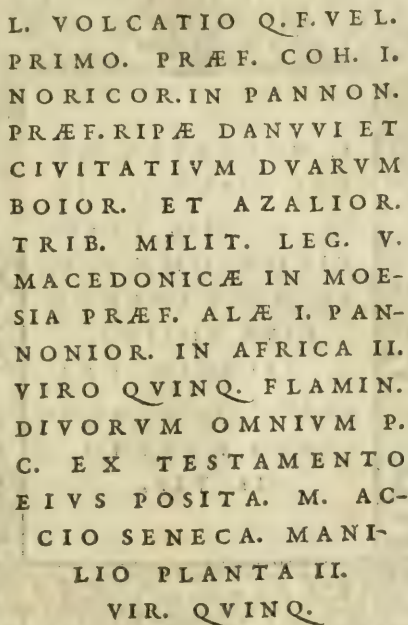 L. VOLCATIO Q. F. VEL.
PRIMO. PRÆF. COH. I.
NORICOR. IN PANNON.
PRÆF. RIPÆ DANVVI ET
CIVITATIVM DVARVM
BOIOR. ET AZALIOR.
TRIB. MILIT. LEG. V.
MACEDONICÆ IN MOE-
SIA PRÆF. ALÆ I. PAN-
NONIOR. IN AFRICA II.
VIRO QVINQ. FLAMIN.
DIVORVM OMNIVM P.
C. EX TESTAMENTO
EIVS POSITA. M. AC-
CIO SENECA. MANI-
LIO PLANTA II.
VIR. QVINQ.